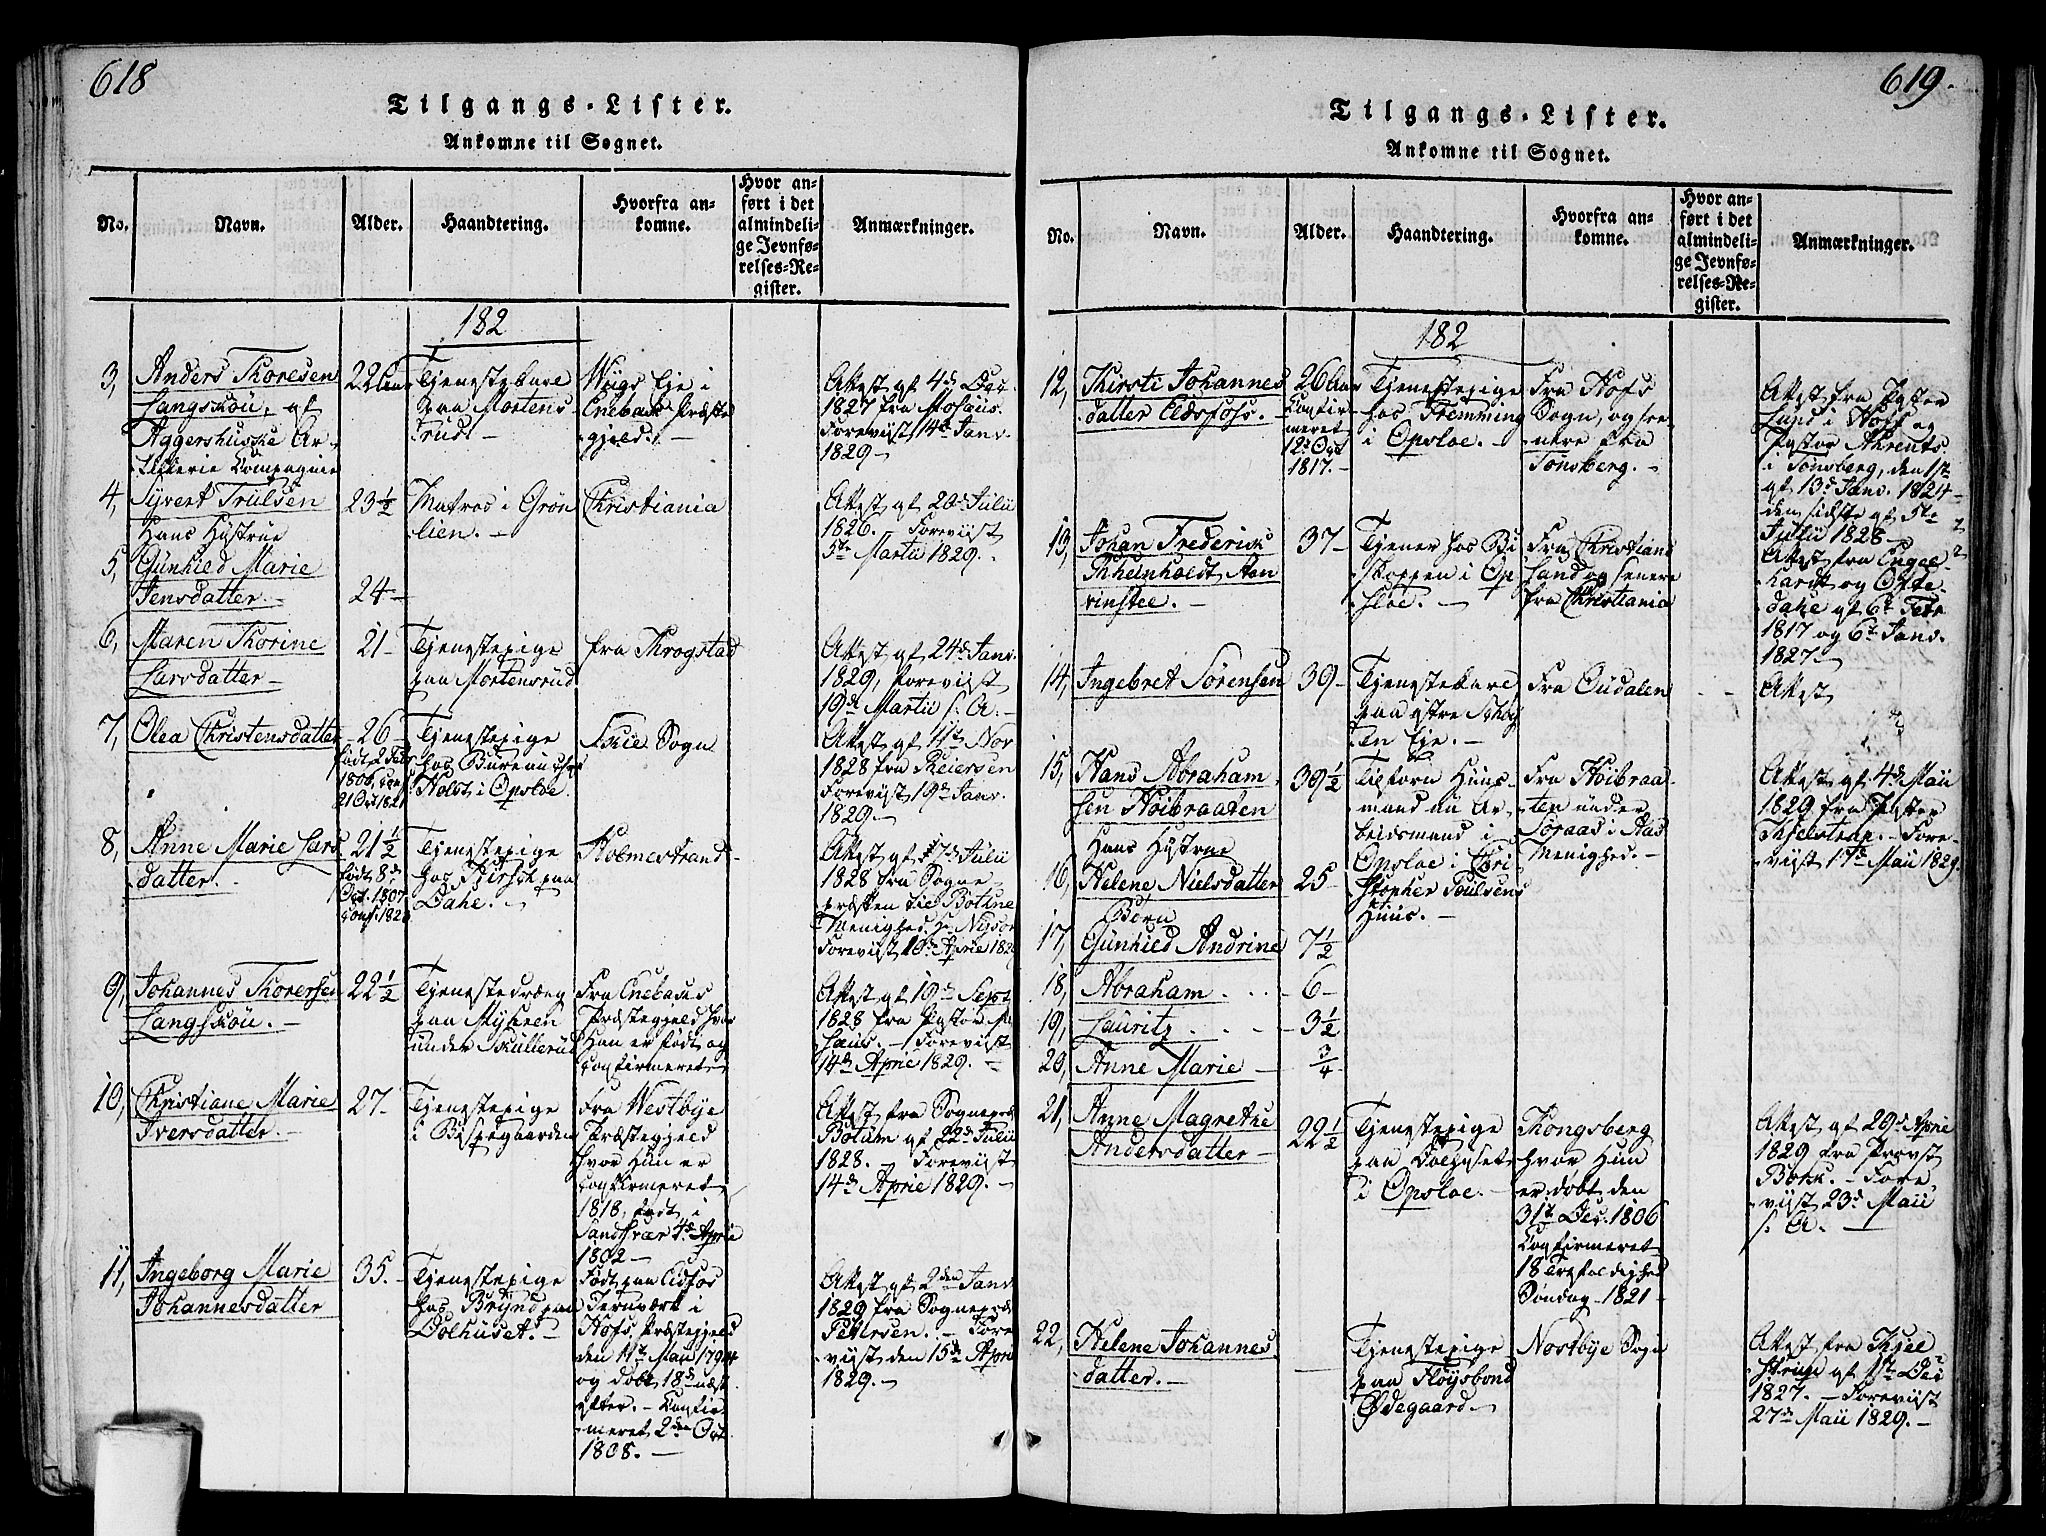 618
Tilgangs-Lister.
Ankomne til Sognet.
No.
Navn.
Alder.
Haandtering.
Hvorfra an-
komne.
Hvor an-
ført i det
almindeli-
ge Jevnfø-
relses-Re-
gister.
Anmærkninger.
182
3,
Anders Thoresen
Langskou, af
Aggershuuske Ar-
tillerie Compagnie
22 aar
Tjenestekarl
paa Mortens
rud
Wugs Eje i
Enebak Præste
gjeld.
Attest af 4de Dec.
1827 fra
Foreviist 14de Janv.
1829
4,
Syvert Trulsen
23½
Matros i Grøn
lien.
Christiania
Attest af 20de Julii
1826. Foreviist
5te Martii 1829.
Hans Hustrue
5,
Gunhild Marie
Jensdatter
24
6,
Maren Thorine
Larsdatter
21
Tjenestepige
paa Mortensrud
fra Krogstad
Attest af 24de Janv.
1829, foreviist
19de Martii s. A.
7,
Olea Christensdatter
26
født 2 Febr
1806, conf.
21 Oct 1821
Tjenestepige
hos Bureauchef
Holst i Opsloe.
Skie Sogn
Attest af 4de Nov
1828 fra Theiersen
Foreviist 19de Janv.
1829
8,
Anne Marie Lars
datter.
21½
født 8de
Oct. 1807
conf. 182
Tjenestepige
hos paa
Dahl.
Holmestrand
Attest af 17de Julii
1828 fra Sogne-
præsten til Botne
Menighed Hr
Foreviist 10de April 1829
9,
Johannes Thorersen
Langskou.
22½
Tjenestedreng
paa Myhren
under Skullerud
Fra Enebaks
Præstegjeld hvor
Han er født og
Confirmeret
Attest af 19de Sept
1828 fra Pastor
Foreviist
14de April 1829.
10,
Christiane Marie
Iversdatter.
27
Tjenestepige
i Bispegaarden
Fra Westbye
Præstegjeld
hvor Hun er
Confirmeret
1818, født i
Sandsvær 4de April
1802
Attest fra Sognepræst
Botum af 22de Julii
1828. Foreviist
14de April 1829.
11,
Ingeborg Marie
Johannesdatter
35.
Tjenestepige
hos Brynd paa
Dolhuset.
Født paa Eidfos
Jernværk i
Hofs Præstegjeld
den 11te Maii 1794
og døbt 18de næst
efter. Confir-
meret 2den Oct
1808.
Attest af 2den Janv.
1829 fra Sognepræst
Petersen. Fore
viist den 15de April
1829.
619.
Tilgangs-Lister.
Ankomne til Sognet.
No.
Navn.
Alder.
Haandtering.
Hvorfra an-
komne.
Hvor an-
ført i det
almindeli-
ge Jevnfø-
relses-Re-
gister.
Anmærkninger.
182
12,
Kirsti Johannes
datter Eidsfoss.
26 Aar
Confir-
meret
12te Oct
1817.
Tjenestepige
hos Fremming
i Opsloe.
Fra Hofs
Sogn, og see-
nere fra
Tønsberg.
Attest fra Pastor
Lund i Hoff og
Pastor Ahrents
i Tønsberg, den 1ste
af 13de Janv. 1824
den sidste af 5te
Julii 1828
13,
Johan Frederik
Rheinholdt Aan
rinstee.
37
Tjener hos Bi
skoppen i Op
sloe.
Fra Christian
sand og senere
fra Christiania
Attest fra Engel-
hardt og Ofte-
dahl af 6te Febr
1817 og 6te Janv.
1827.
14,
Ingebret Sørensen
39
Tjenestekarl
paa østre Schøy
en Eje.
Fra Oudalen
Attest
15,
Hans Abraham
sen Høibraaten
39½
Tilforn Huus-
mand nu Ar-
beidsmand i
Opsloe i Chri
stopher Poulsens
Huus.
Fra Høibraa-
ten under
Soraas i Aas
Menighed.
Attest af 4de Maii
1829 fra Pastor
Kjelstrup. Fore-
viist 17de Maii 1829.
Hans Hustrue
16,
Helene Nielsdatter
25
Børn
17,
Gunhild Andrine
7½
18,
Abraham
6
19,
Lauritz
3½
20,
Anne Marie
¾
21,
Anne Magrethe
Andersdatter
22½
Tjenestepige
paa Dolhuset
i Opsloe.
Kongsberg
hvor Hun
er døbt den
31te Dec. 1806
Confirmeret
18 Trefoldighed
Søndag 1821
Attest af 29de April
1829 fra Provst
Bork. Fore-
viist 23de Maii
s. A.
22,
Helene Johannes
datter.
Tjenestepige
paa Fløysbond
Ødegaard
Nordbye Sogn
Attest fra Kjel
strup af 1ste Dec
1827. Foreviist
27de Maii 1829.